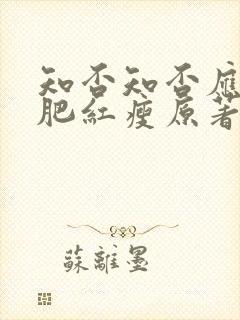 知否知否應
肥紅瘦原著
蘇離墨